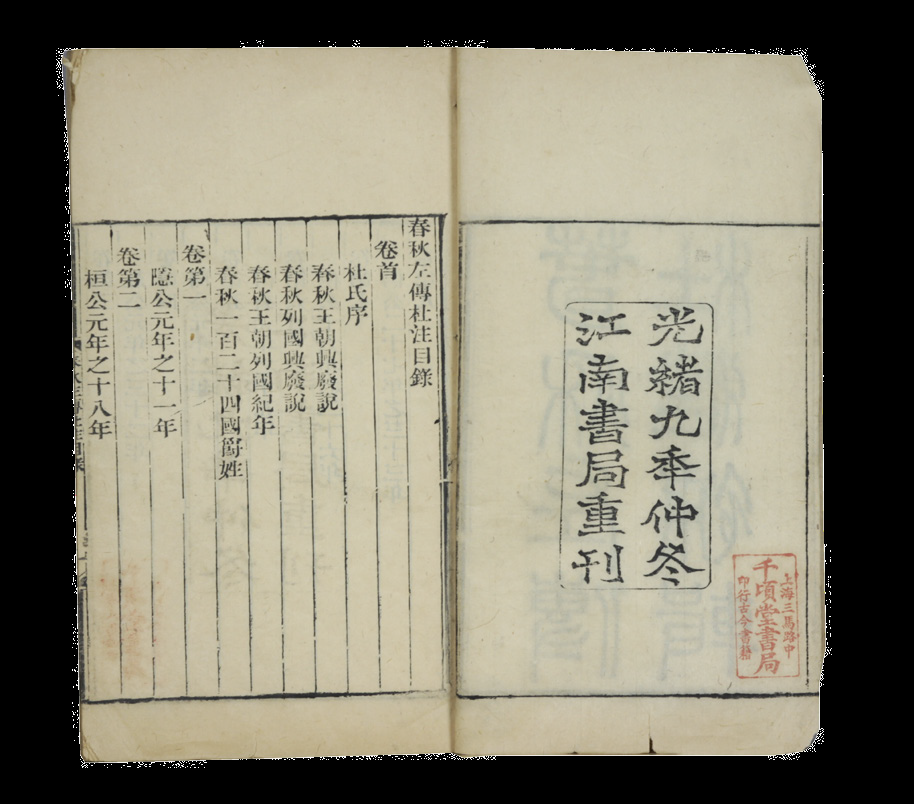 光緒九秊仲冬
江南書局重刊
上海三馬路中
千頃堂書局
印行古今書籍
春秋左傳杜注目錄
卷首
杜氏序
春秋王朝興廢說
春秋列國興廢說
春秋王朝列國紀年
春秋一百二十四國爵姓
卷第一
隱公元年之十一年
卷第二
桓公元年之十八年